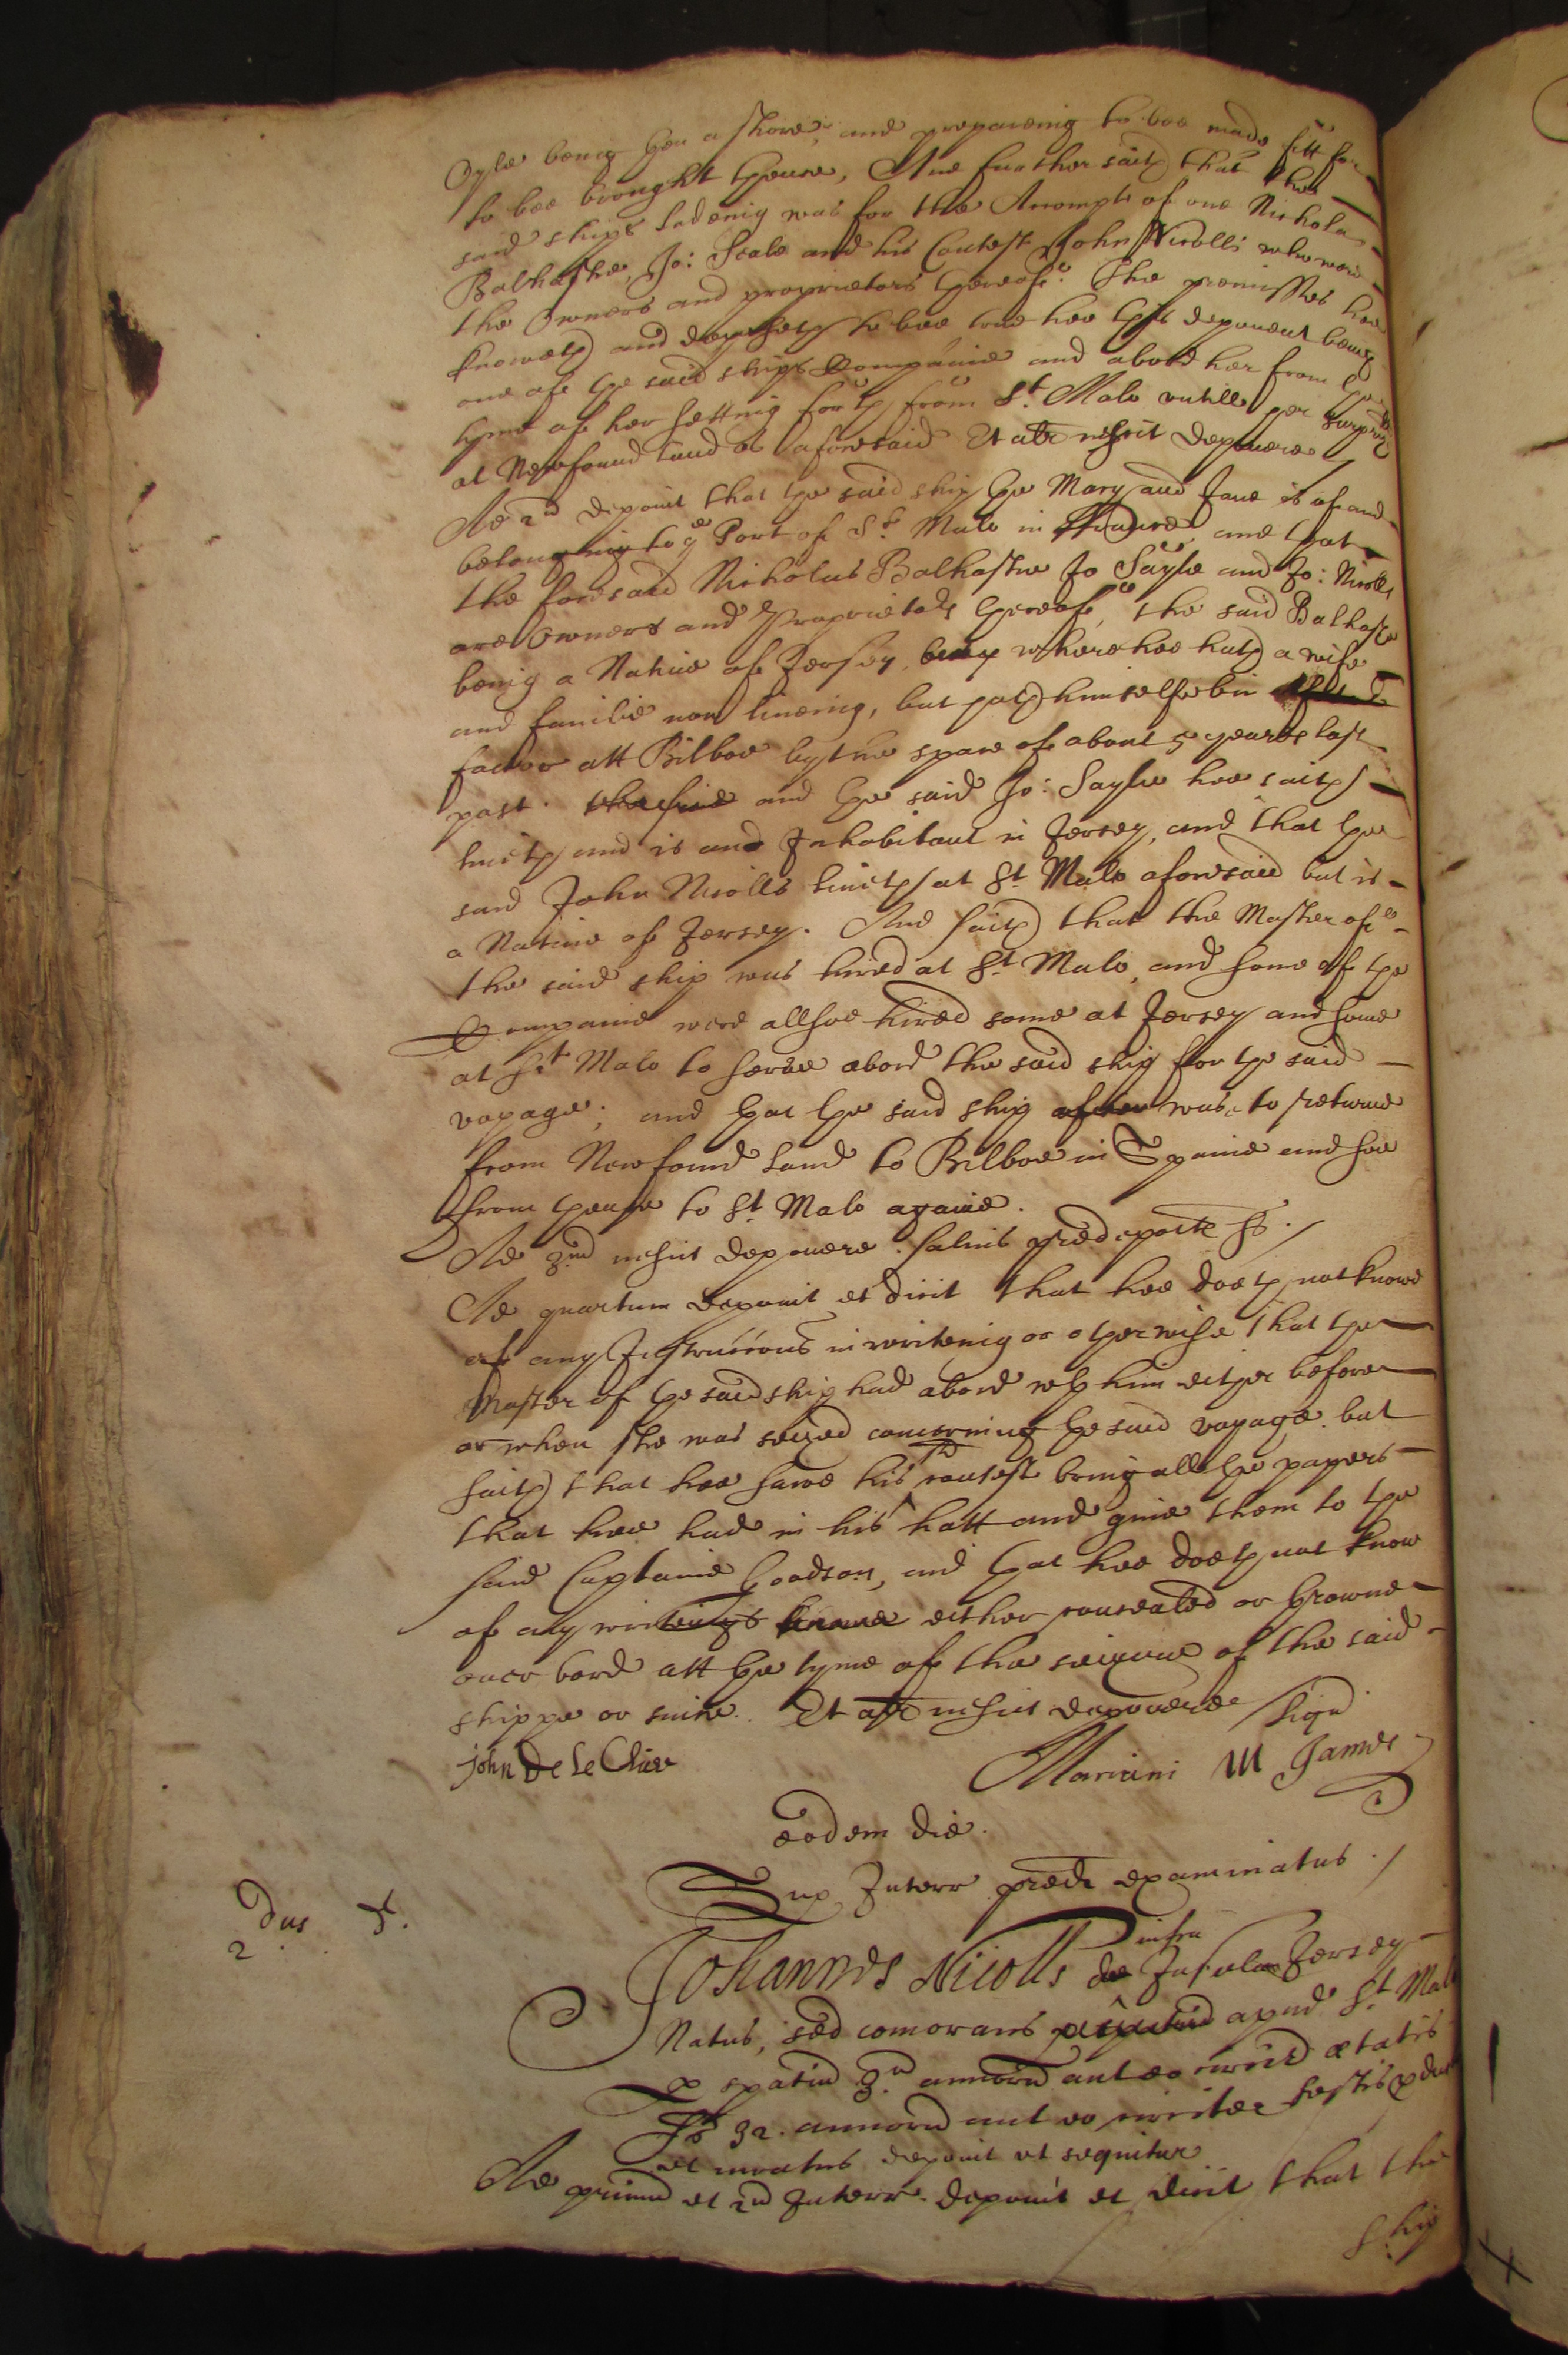 Oyle being then a shore, and prepareing to bee made fitt for
to bee brought thence, And further saith that the
said ships ladeing was for the Accompte of one Nicholas
Balhashe, Jo: Seale and his Contest John Nicolls who were
the Owners and proprietors thereof. The premisses hee
knoweth and deposeth to bee true hee this deponent being
one of the said ships Companie and abord her from the
tyme of her setting forth from St. Malo untill her surprize
at Newfound land as aforesaid Et alr nescit deponere
Ad 2d deponit that the said ship the Mary and Jane is of and
belonging to ye Port of St. Malo in France and that
the foresaid Nicholas Balhashe Jo Sayle and Jo: Nicolls
are Owners and Proprietors thereof, the said Balhashe
being a Native of Jersey, where hee hath a wife
and familie now liveing, but hath himselfe bin
factor att Bilboe by the space of about 5 yeares last
past. and the said Jo: Sayle hee saith
liveth and is and Inhabitant in Jersey, and that the
said John Nicolls liveth at St. Malo aforesaid but is
a Native of Jersey. And saith that the Master of
the said ship was hired at St Malo, and some of the
Companie were allsoe hired some at Jersey and some
at St Malo to serve abord the said ship for the said
voyage; and that the said ship was to returne
from Newfound land to Bilboe in Spaine and soe
from thence to St Malo againe.
Ad 3um nescit deponere. salvis prædeposit
Ad quartum deponit et dicit that hee doeth not knowe
of any Instruccons in writeing or otherwise that the
Master of the said ship had abord wth him either before
or when she was seized concerning the said voyage. but
saith that hee sawe his contest bring all the papers
that hee had in his hatt and give them to the
said Captaine Goodson, and that hee doeth not know
of any writeings either concealed or throwne
over bord att the tyme of the seizure of the said
shippe or since. Et alr nescit deponere Sign
John De Le Cluse Marcini M James
eodem die.
Sup Interr præd examinatus.
2 dus
Johannes Nicolls infra Insulam Jersey
Natus, sed comorans apud St Malo
p spatiu 3 annoru aut eo circit ætatis
32. annoru aut eo circiter testis pduct
et iuratus deponit ut sequitur
Ad primu et 2d Interr deponit et dicit that the
ship